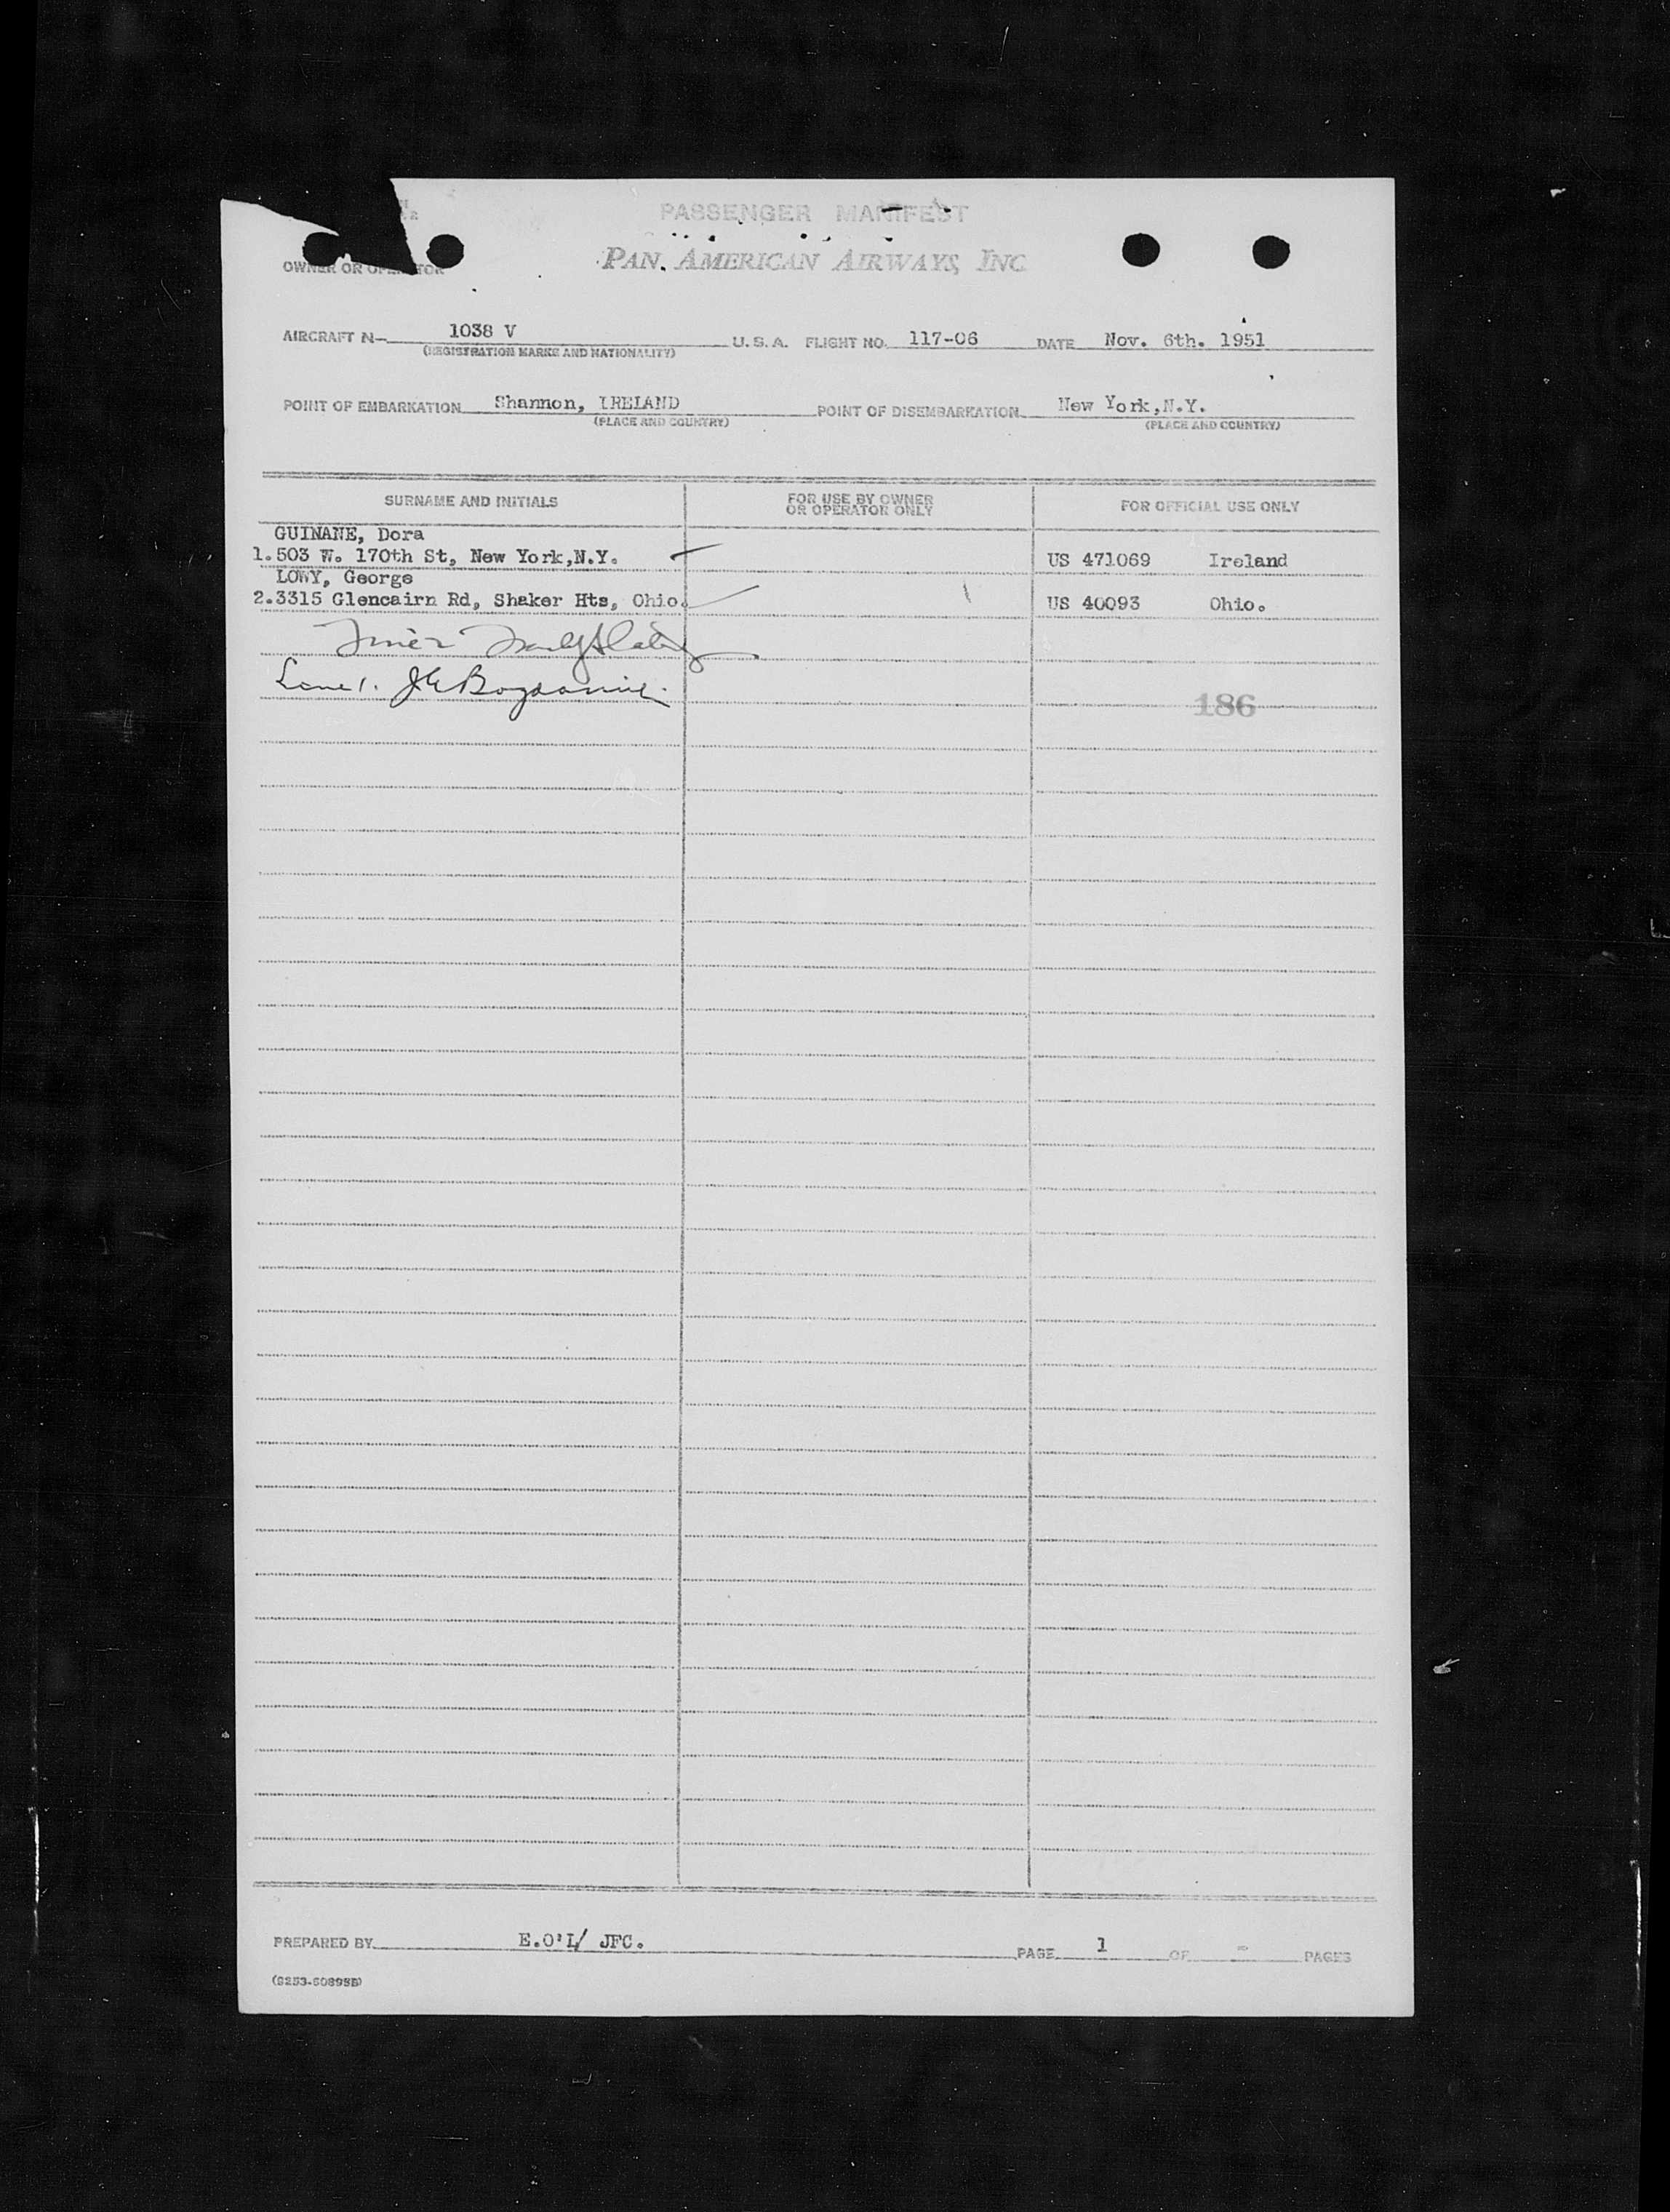 PASSENGER MANIFEST
OWNER OR OPERATOR PAN AMERICAN AIRWAYS, INC.
AIRCRAFT N- 1038 V U.S.A. FLIGHT NO. 117-06 DATE Nov. 6th. 1951
(REGISTRATION MARKS AND NATIONALITY)
POINT OF EMBARKATION Shannon, IRELAND POINT OF DISEMBARKATION New York,N.Y.
(PLACE AND COUNTRY) (PLACE AND COUNTRY)
SURNAME AND INITIALS FOR USE BY OWNER OR OPERATOR ONLY FOR OFFICIAL USE ONLY
GUINANE, Dora
1.503 W. 170th St, New York,N.Y. US 471069 Ireland
LOWY, George
2.3315 Glencairn Rd, Shaker Hts, Ohio. US 40093 Ohio.
Line 1.
186
PREPARED BY E.O'L/ JFC. PAGE 1 OF - PAGES